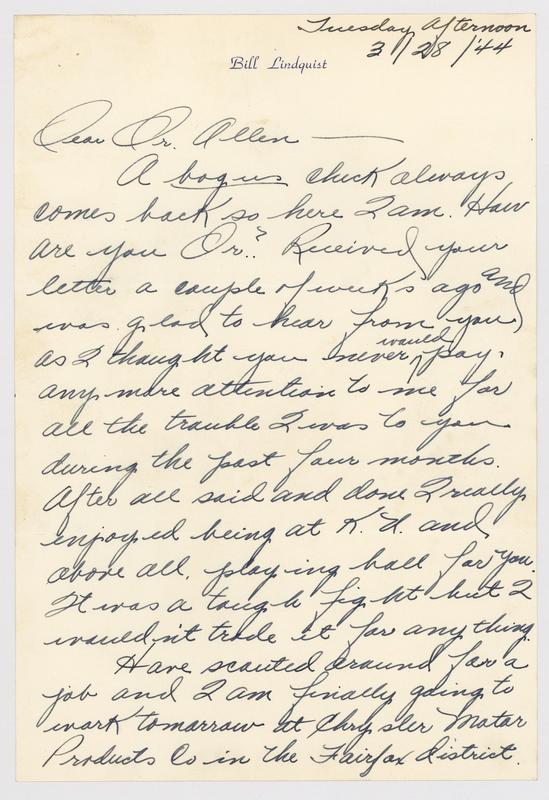 Tuesday Afternoon
3/28/'44
Bill Lindquist
Dear Dr. Allen —
A bogus check always
comes back so here I am. How
are you Dr.? Received your
letter a couple of weeks ago and
was glad to hear from you
as I thought you never would pay
any more attention to me for
all the trouble I was to you
during the past four months.
After all said and done I really
enjoyed being at K. U. and
above all, playing ball for you.
It was a tough fight but I
wouldn't trade it for anything.
Have scouted around for a
job and I am finally going to
work tomorrow at Chrysler Motor
Products Co in the Fairfax District.